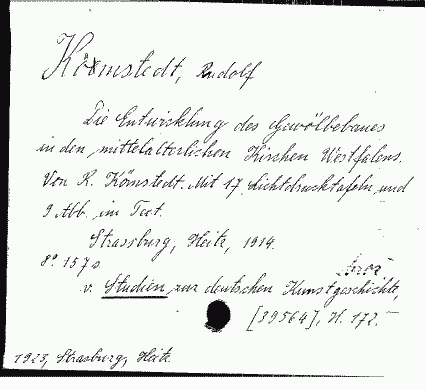 Kömstedt, Rudolf
Die Entwicklung des Gewölbebaues
in den mittelalterlichen Kirchen Westfalens.
Von R. Kömstedt. Mit 17 Lichtdrucktafeln und
9 Abb. im Text.
Strassburg, Heitz, 1914.
8° 157 s
v. Studien zur deutschen Kunstgeschichte,
[39564], H. 172.
1923, Strasburg, Heitz